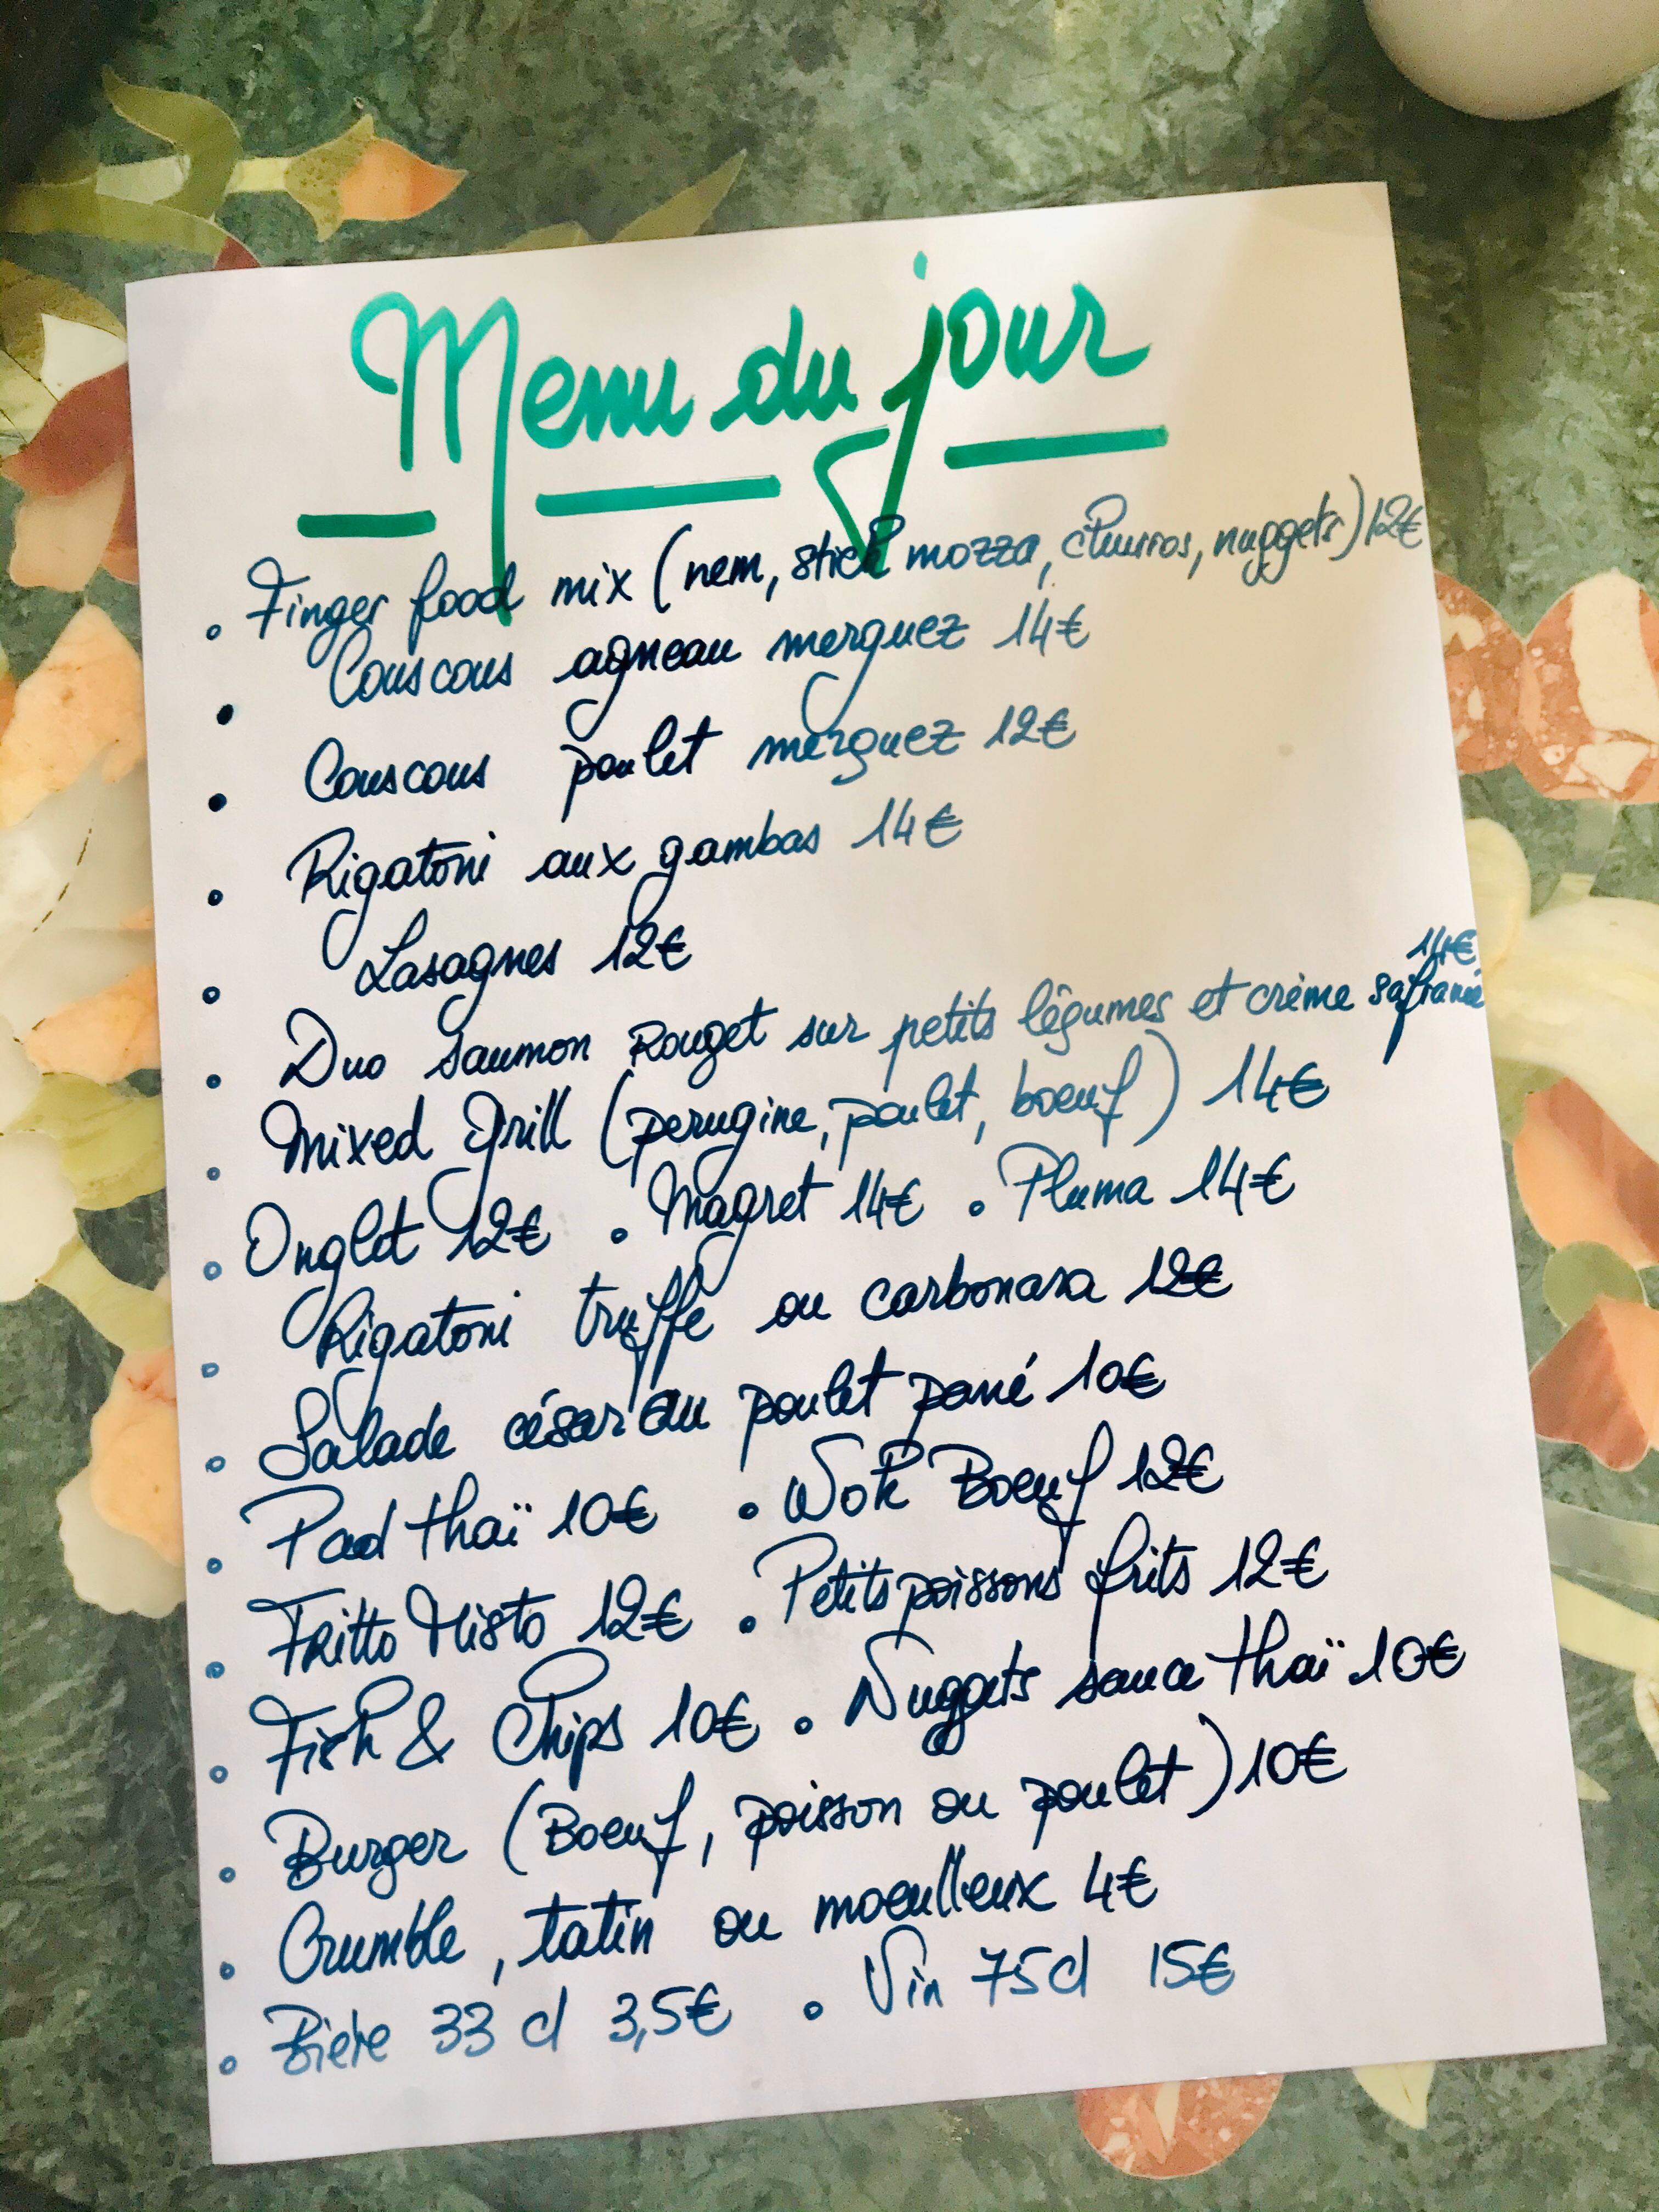 Menu du jour
• Finger food mix (nem, stick mozza, churros, nuggets) 12€
• Couscous agneau merguez 14€
• Couscous poulet merguez 12€
• Rigatoni aux gambas 14€
• Lasagnes 12€
• Duo saumon Rouget sur petits légumes et crème safranée 14€
• Mixed Grill (perugine, poulet, boeuf) 14€
• Onglet 12€ • Magret 14€ • Pluma 14€
• Rigatoni truffe ou carbonara 12€
• Salade césar au poulet pané 10€
• Pad thaï 10€ • Wok Boeuf 12€
• Fritto Misto 12€ • Petits poissons frits 12€
• Fish & Chips 10€ • Nuggets sauce thaï 10€
• Burger (Boeuf, poisson ou poulet) 10€
• Crumble, tatin ou moeulleux 4€
• Bière 33 cl 3,5€ • Vin 75cl 15€